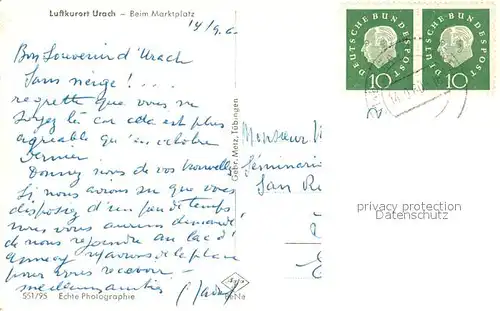 Luftkurort Urach – Beim Marktplatz
14/9.6
Bon Souvenir d'Urach
Sans neige! ...
regrette que vous ne
soyez là car cela est plus
agréable qu'en octobre
dernier.
Donnez nous de vos nouvelles
Si nous avions su que vous
disposiez d'un peu de temps
nous vous aurions demandé
de nous rejoindre au lac d'
Annecy nous avons de la place
pour vous recevoir -
meilleures amitiés
551/95 Echte Photographie
Gebr. Metz, Tübingen
BeNe
DEUTSCHE BUNDESPOST
10
DEUTSCHE BUNDESPOST
10
Monsieur
Séminaire
San Re
privacy protection
Datenschutz